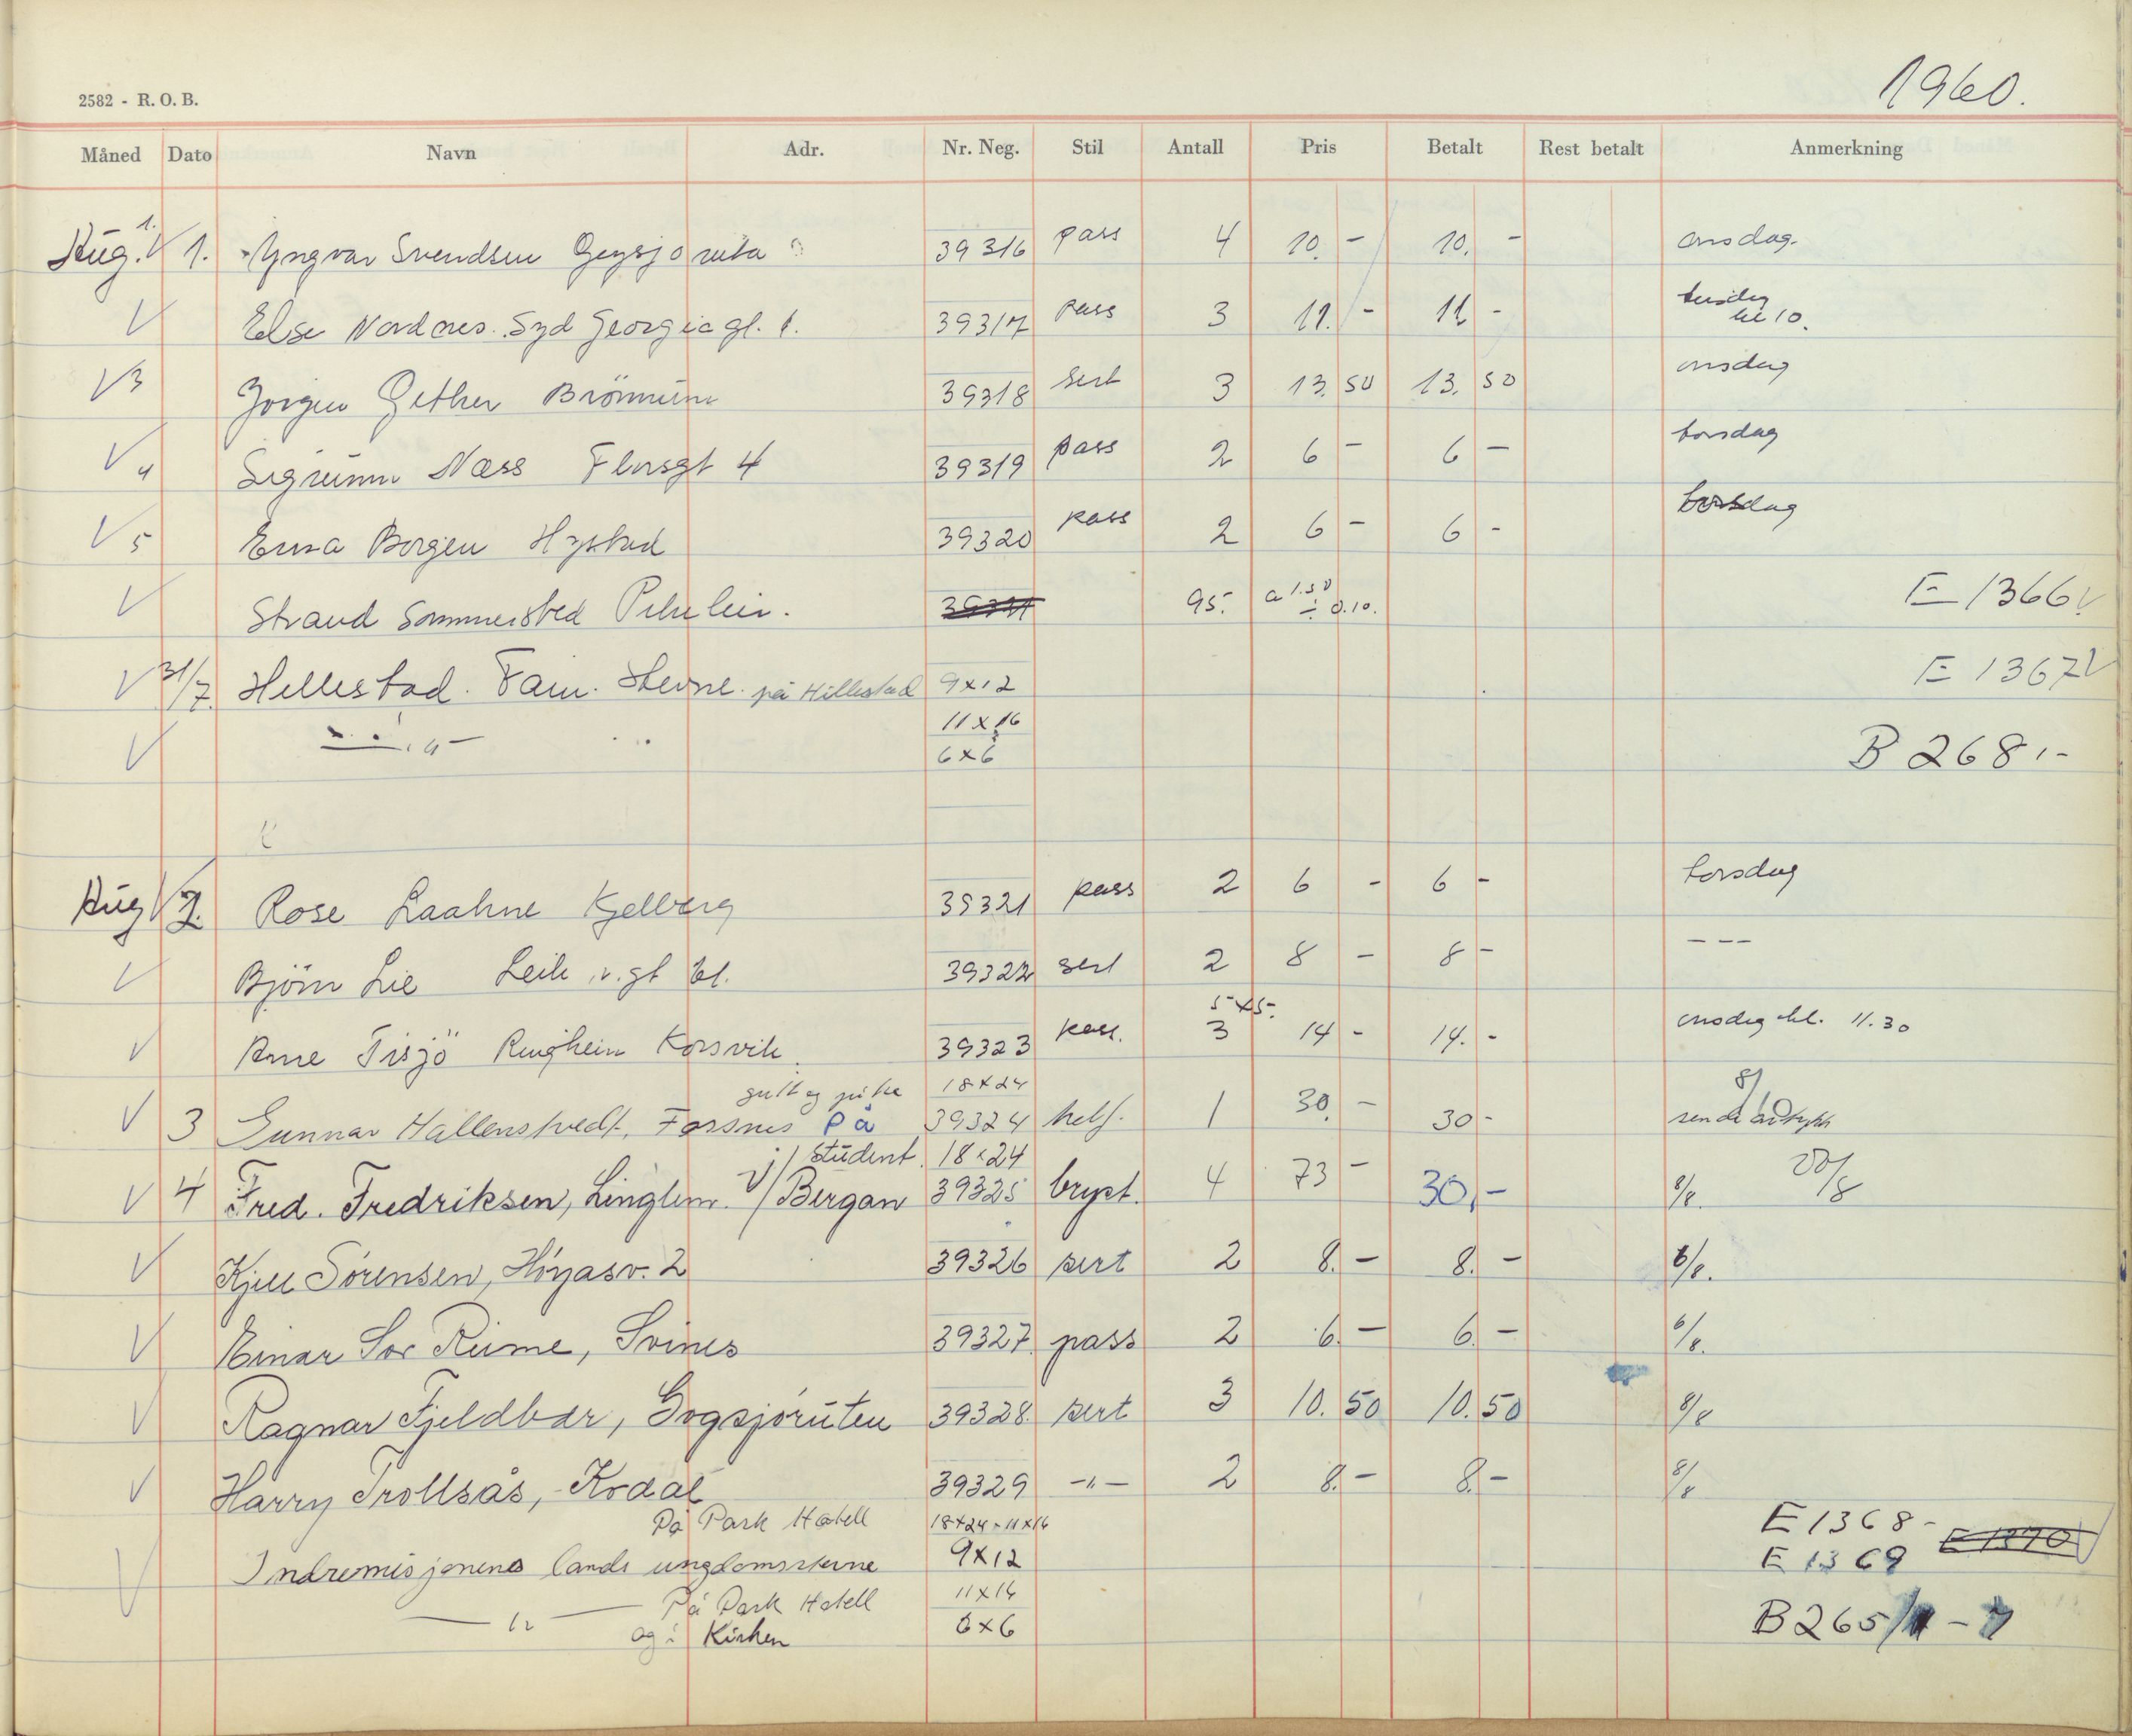 1960.
2582 - R. O. B.
Måned Dato Navn Adr. Nr. Neg. Stil Antall Pris Betalt Rest betalt Anmerkning
Aug. 1. 1. Yngvar Svendsen 39316 pass 4 10. - 10. - onsdag.
Else Nordnes. Syd Georgia gt. 1. 39317 pass 3 11. - 11 - kl 10.
3 Jørgen Gether 39318 sert 3 13. 50 13. 50 onsdag
4 Sigrunn Næss Florsgt 4 39319 pass 2 6 - 6 - torsdag
5 Erna Borgen Hystad 39320 pass 2 6 - 6 - torsdag
Strand Sommersted 95. a 1.50 ÷ 0.10. E 1366
31/7. Hellestad. Fam. Stevne på Hillestad 9x12 E 1367
11x16
- " - 6x6 B 268 . -
Aug 2. Rose Laahne Kjelberg 39321 pass 2 6 - 6 - torsdag
Bjørn Lie 39322 sert 2 8 - 8 - - - -
5x5.
Arne Tisjö Ringheim Korsvik. 39323 pass. 3 14 - 14. - onsdag kl. 11.30
gult og 18x24 8/
3 Gunnar Hallenstvedt, Fossnes på 39324 helf. 1 30. - 30 - sende
student. 18x24
4 Fred. Fredriksen, Linglem. v/Bergan 39325 bryst. 4 73 - 30,- 8/8. 20/8
Kjell Sörensen, Höyasv. 2 39326 sert 2 8. - 8. - 8/8.
Einar Sor Riime, Svines 39327 pass 2 6. - 6. - 6/8.
Ragnar Fjeldbar, Gogsjøruten 39328. sert 3 10. 50 10. 50 8/8
Harry Trollsås, Kodal 39329 -"- 2 8. - 8. - 8/8
På Park Hotell 18x24 - 11x16 E 1368 -
Indremisjonens lands ungdomsstevne 9x12 E 1369 E 1370
På Park Hotell 11x16
- " - og i Kirken 6x6 B 265/ - 7